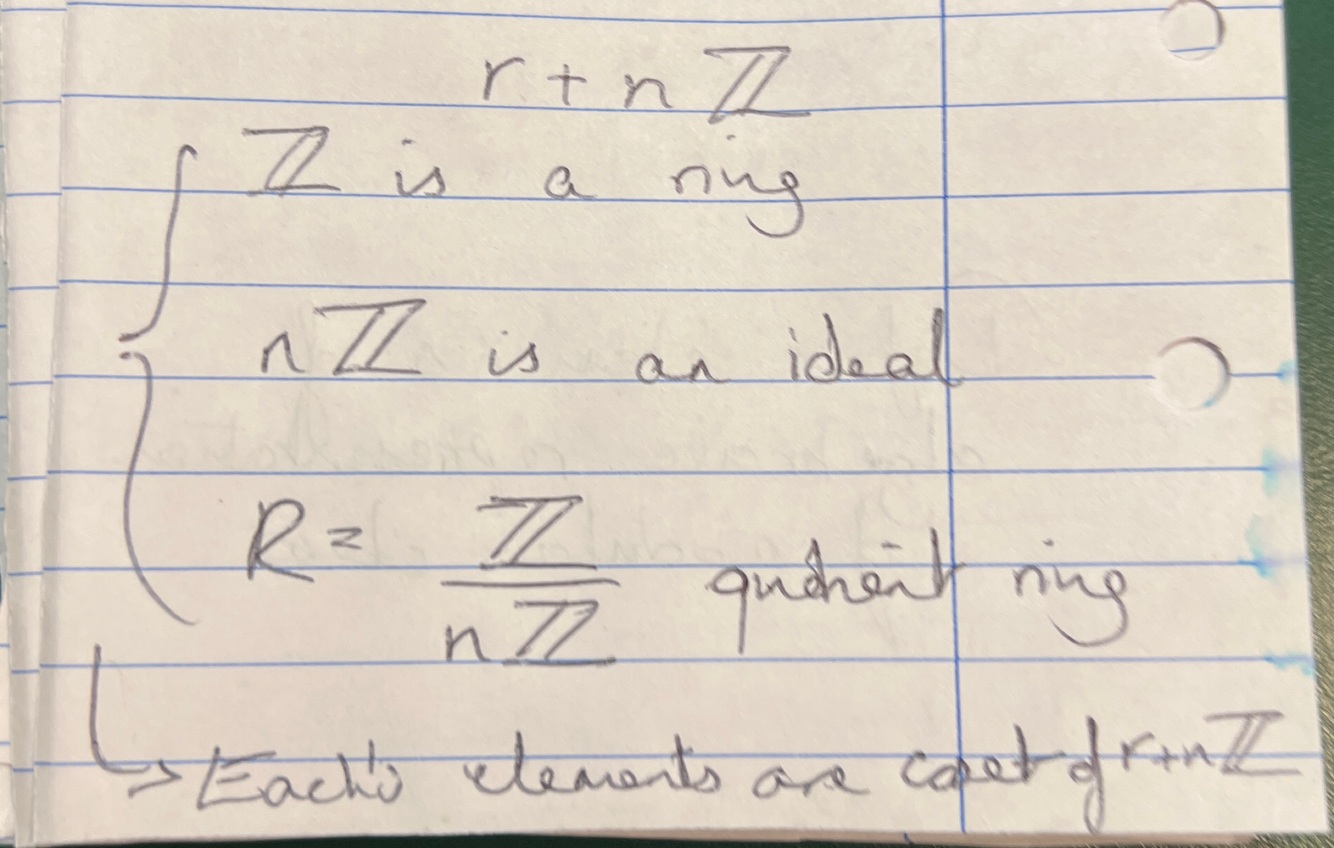 r + n ℤ
ℤ is a ring
nℤ is an ideal
R = ℤ / nℤ quotient ring
↳ Each's elements are coset of r+nℤ